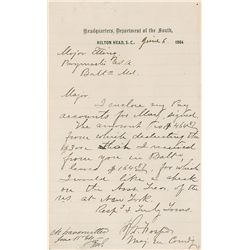 Headquarters, Department of the South,
HILTON HEAD, S.C., June 6 1864
Major Eting
Paymaster U.S.A
Balto Md.
Major
I enclose my Pay
accounts for May, signed.
The amount is $464
from which deducting the
$300 that I received
from you in Balto
leaves $164 for which
I would like a check
on the Asst Treas. of the
U.S. at New York.
Resp'y & Truly Yours
Maj. Genl Comdg
Ck transmitted
June 11" 64